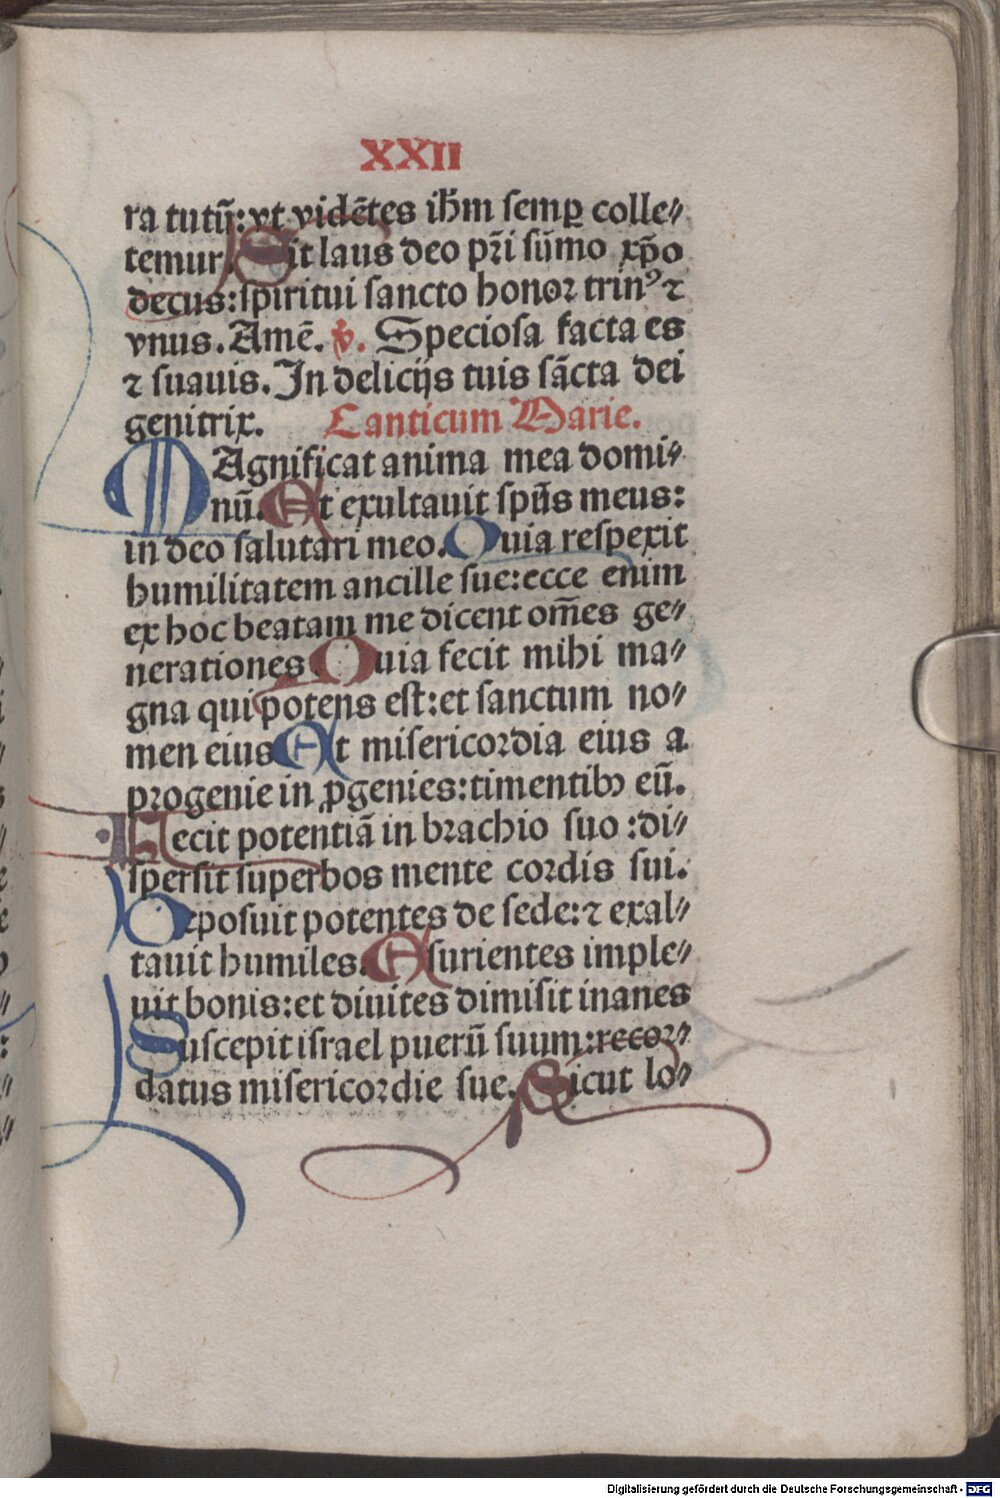 XXII
ra tutū: vt vidētes ihm̄ semꝑ colle⸗
temur. Sit laus deo pr̄i sūmo xp̄o
decus: spiritui sancto honoꝛ trinꝰ ⁊
vnus. Amē. ℣. Speciosa facta es
⁊ suauis. In delicijs tuis sācta dei
genitrix. Canticum Marie.
MAgnificat anima mea domi⸗
nū. Et exultauit spūs meus:
in deo salutari meo. Quia respexit
humilitatem ancille sue: ecce enim
ex hoc beatam me dicent om̄es ge⸗
nerationes Quia fecit mihi ma⸗
gna qui potens est: et sanctum no⸗
men eius Et misericoꝛdia eius a
progenie in ꝓgenies: timentibꝰ eū.
Fecit potentiā in bꝛachio suo: di⸗
spersit superbos mente coꝛdis sui.
Deposuit potentes de sede: ⁊ exal⸗
tauit humiles. Esurientes imple⸗
uit bonis: et diuites dimisit inanes
Suscepit israel puerū suum: recoꝛ⸗
datus misericoꝛdie sue. Sicut lo⸗
Digitalisierung gefördert durch die Deutsche Forschungsgemeinschaft - DFG